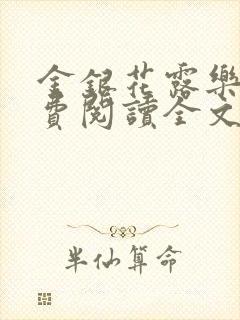 金銀花露樂
費閱讀全文
半仙算命